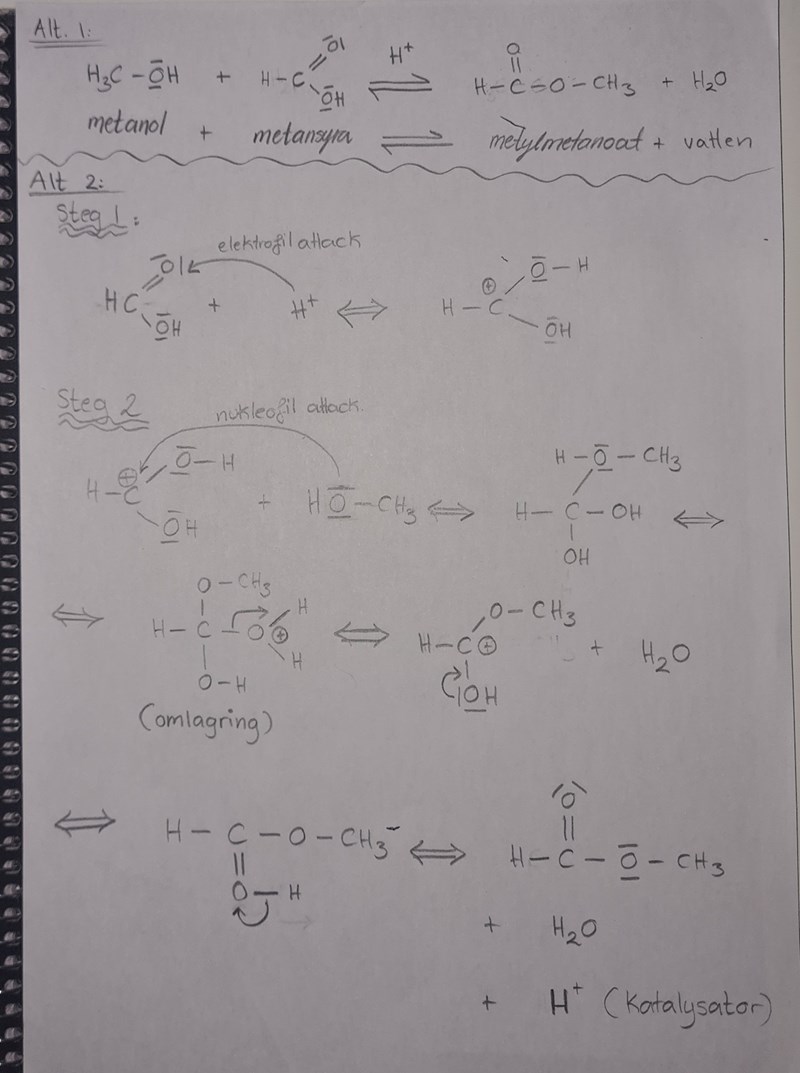 Alt. 1:
H₃C – OH + H – C O OH ⇌ H⁺ H – C – O – CH₃ + H₂O
O
metanol + metansyra ⇌ metylmetanoat + vatten
Alt 2:
Steg 1:
elektrofil attack
HC O OH + H⁺ ⇔ H – C ⊕ O – H OH
Steg 2
nukleofil attack.
H – C ⊕ O – H OH + HO – CH₃ ⇔ H – O – CH₃
H – C – OH ⇔
OH
⇔ O – CH₃
H – C – O ⊕ H H ⇔ H – C ⊕ O – CH₃ + H₂O
O – H OH
(omlagring)
⇔ H – C – O – CH₃⁻ ⇔ H – C – O – CH₃
O – H O
+ H₂O
+ H⁺ (Katalysator)